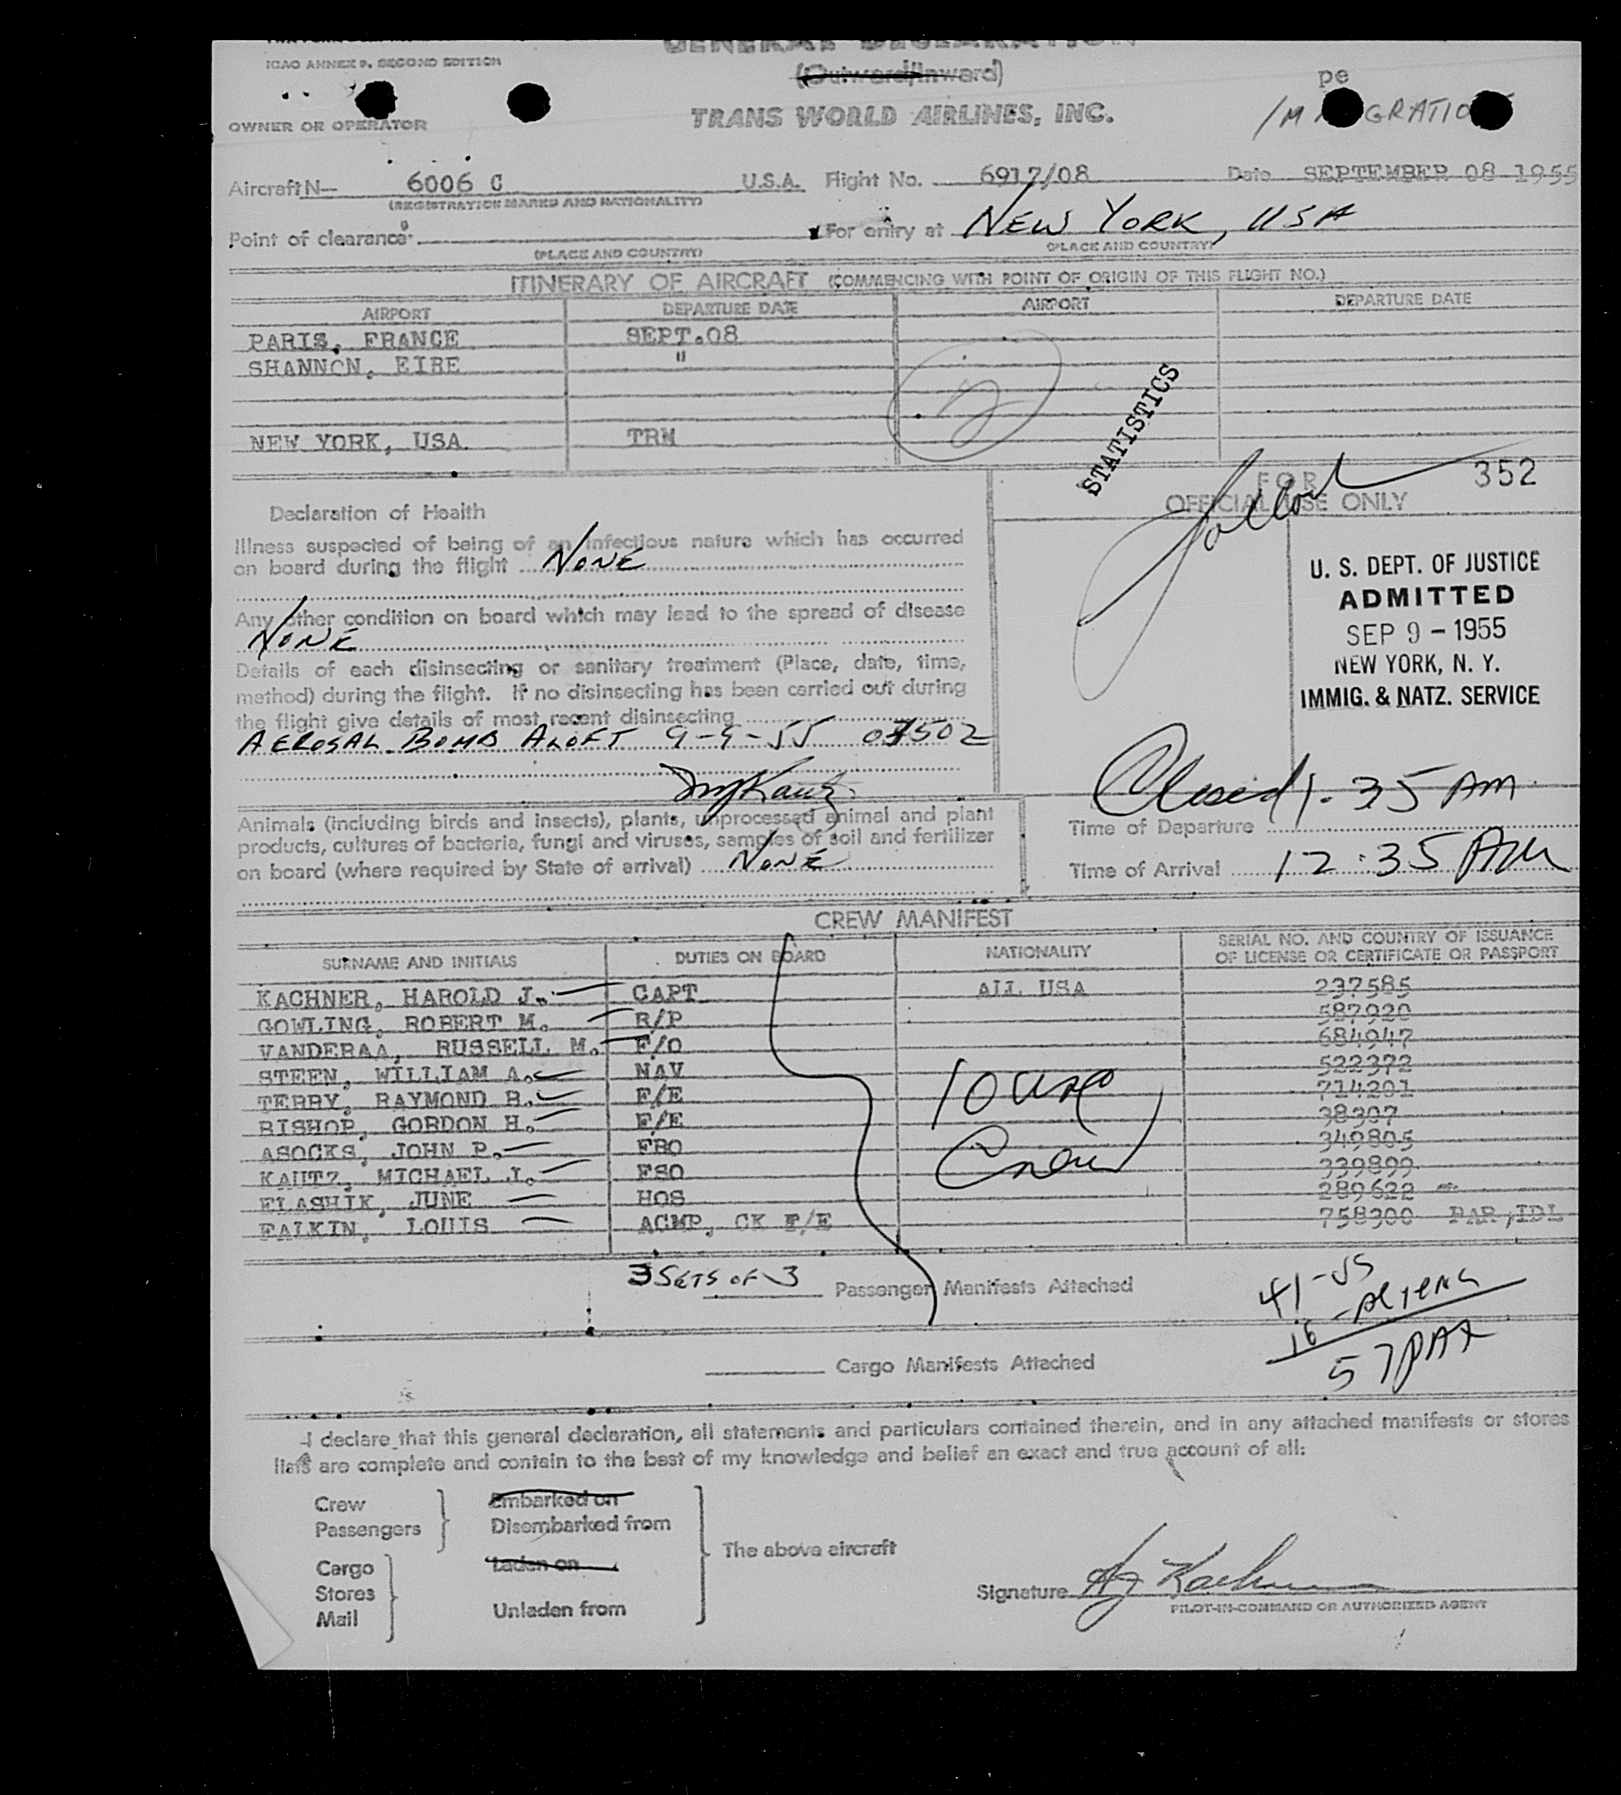 ICAO ANNEX 9, SECOND EDITION
GENERAL DECLARATION
(Outward/Inward)
pe
OWNER OR OPERATOR
TRANS WORLD AIRLINES, INC.
IMMIGRATION
Aircraft N— 6006 C U.S.A. Flight No. 6917/08 Date SEPTEMBER 08 1955
(REGISTRATION MARKS AND NATIONALITY)
Point of clearance For entry at NEW YORK, USA
(PLACE AND COUNTRY) (PLACE AND COUNTRY)
ITINERARY OF AIRCRAFT (COMMENCING WITH POINT OF ORIGIN OF THIS FLIGHT NO.)
AIRPORT DEPARTURE DATE AIRPORT DEPARTURE DATE
PARIS, FRANCE SEPT.08
SHANNON, EIRE "
NEW YORK, USA. TRM
2
STATISTICS
FOR 352
OFFICIAL USE ONLY
Declaration of Health
Illness suspected of being of an infectious nature which has occurred
on board during the flight NONE
Any other condition on board which may lead to the spread of disease
NONE
Details of each disinsecting or sanitary treatment (Place, date, time,
method) during the flight. If no disinsecting has been carried out during
the flight give details of most recent disinsecting
AEROSAL BOMB ALOFT 9-9-55
U. S. DEPT. OF JUSTICE
ADMITTED
SEP 9 - 1955
NEW YORK, N. Y.
IMMIG. & NATZ. SERVICE
Animals (including birds and insects), plants, unprocessed animal and plant
products, cultures of bacteria, fungi and viruses, samples of soil and fertilizer
on board (where required by State of arrival) NONE
Closed 1.35 AM
Time of Departure
Time of Arrival 12:35 AM
CREW MANIFEST
SURNAME AND INITIALS DUTIES ON BOARD NATIONALITY SERIAL NO. AND COUNTRY OF ISSUANCE
OF LICENSE OR CERTIFICATE OR PASSPORT
KACHNER, HAROLD J. CAPT ALL USA 237585
GOWLING, ROBERT M. R/P 587920
VANDERAA, RUSSELL M. F/O 684947
STEEN, WILLIAM A. NAV 522372
TERRY, RAYMOND R. F/E 714201
BISHOP, GORDON H. F/E 38307
ASOCKS, JOHN P. FRO 349805
KAUTZ, MICHAEL J. FSO 339899
ELASHIK, JUNE HOS 289622
FALKIN, LOUIS ACMP, CK F/E 758300 PAR, IDL
10 USC
Crew
3 SETS OF 3 Passenger Manifests Attached
41-US
16-ALIENS
57 PAX
Cargo Manifests Attached
I declare that this general declaration, all statements and particulars contained therein, and in any attached manifests or stores
lists are complete and contain to the best of my knowledge and belief an exact and true account of all:
Crew Embarked on
Passengers Disembarked from
The above aircraft
Cargo Laden on
Stores
Mail Unladen from
Signature HJ Kachner
PILOT-IN-COMMAND OR AUTHORIZED AGENT